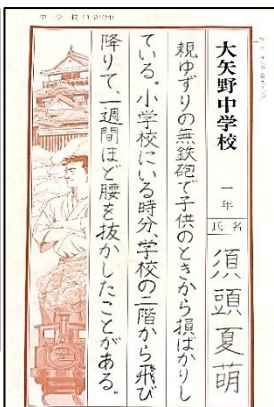 大矢野中学校
一年
氏名
須頭夏萌
親ゆずりの無鉄砲で子供のときから損ばかりし
ている。小学校にいる時分、学校の二階から飛び
降りて、一週間ほど腰を抜かしたことがある。